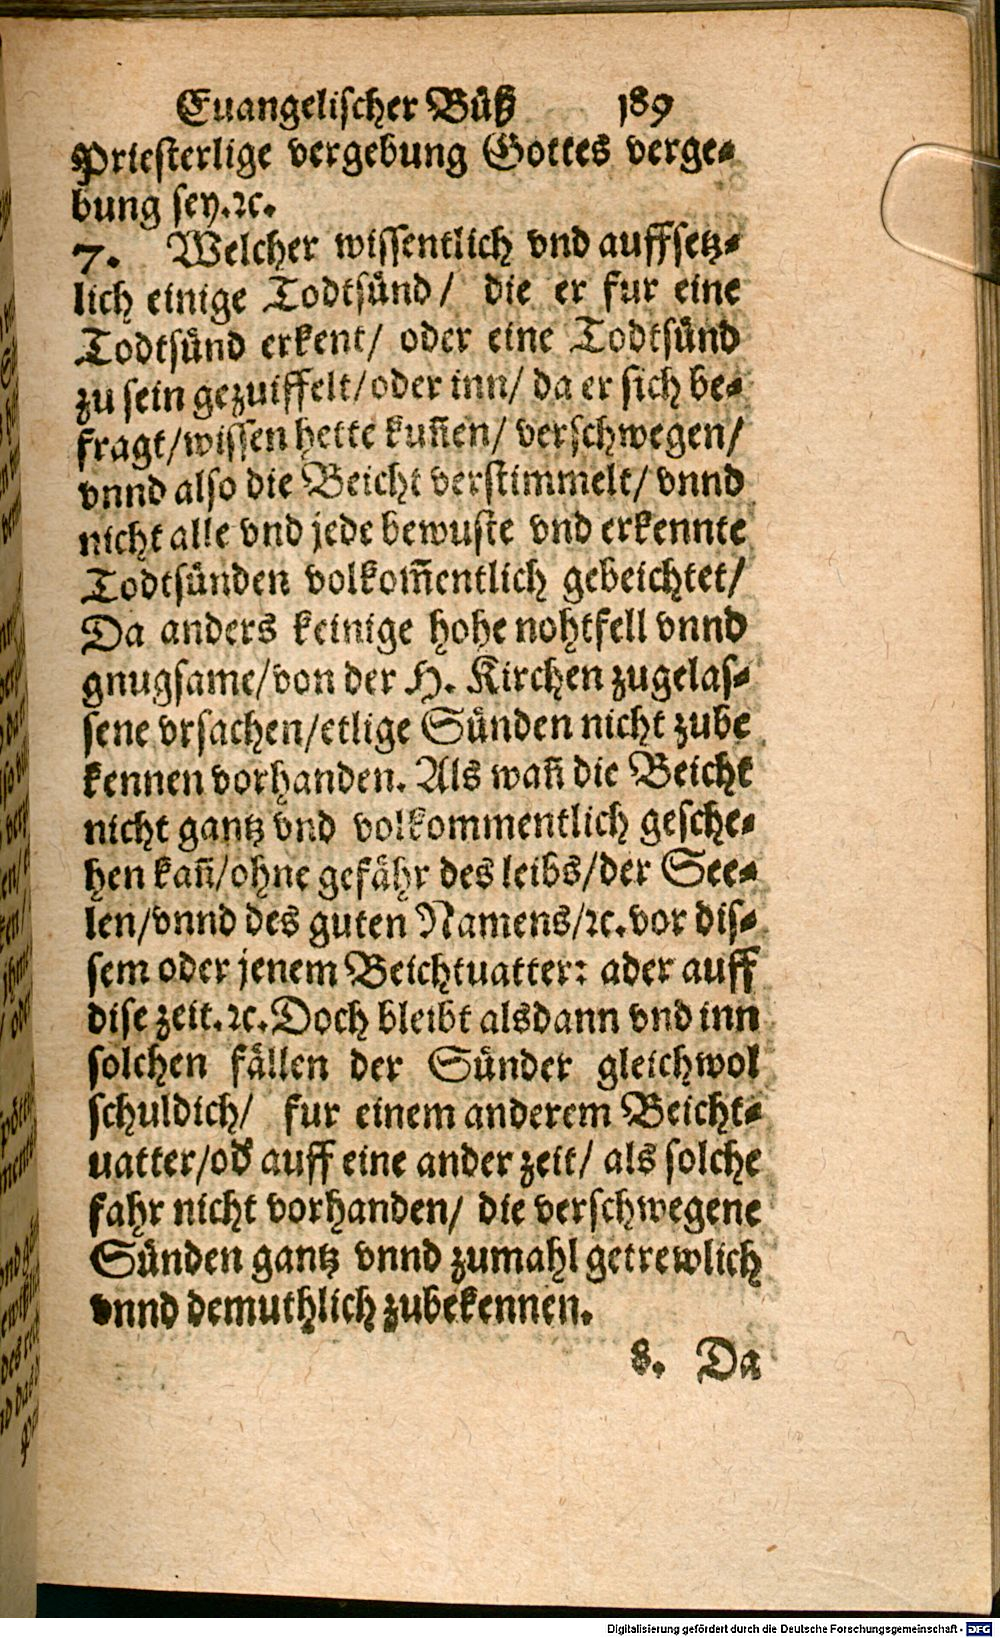 Euangelischer Büß 189
Priesterlige vergebung Gottes verge-
bung sey.ꝛc.
7. Welcher wissentlich vnd auffsetz-
lich einige Todtsünd/ die er fur eine
Todtsünd erkent/ oder eine Todtsünd
zu sein gezuiffelt/oder inn/ da er sich be-
fragt/wissen hette kun̄en/ verschwegen/
vnnd also die Beicht verstimmelt/ vnnd
nicht alle vnd jede bewuste vnd erkennte
Todtsünden volkom̄entlich gebeichtet/
Da anders keinige hohe nohtfell vnnd
gnugsame/von der H. Kirchen zugelas-
sene vrsachen/etlige Sünden nicht zube
kennen vorhanden. Als wan̄ die Beicht
nicht gantz vnd volkommentlich gesche-
hen kan̄/ohne gefähr des leibs/der See-
len/vnnd des guten Namens/ꝛc.vor dis-
sem oder jenem Beichtuatter: ader auff
dise zeit.ꝛc.Doch bleibt alsdann vnd inn
solchen fällen der Sünder gleichwol
schuldich/ fur einem anderem Beicht-
uatter/od̕ auff eine ander zeit/ als solche
fahr nicht vorhanden/ die verschwegene
Sünden gantz vnnd zumahl getrewlich
vnnd demuthlich zubekennen.
8. Da
Digitalisierung gefördert durch die Deutsche Forschungsgemeinschaft - DFG